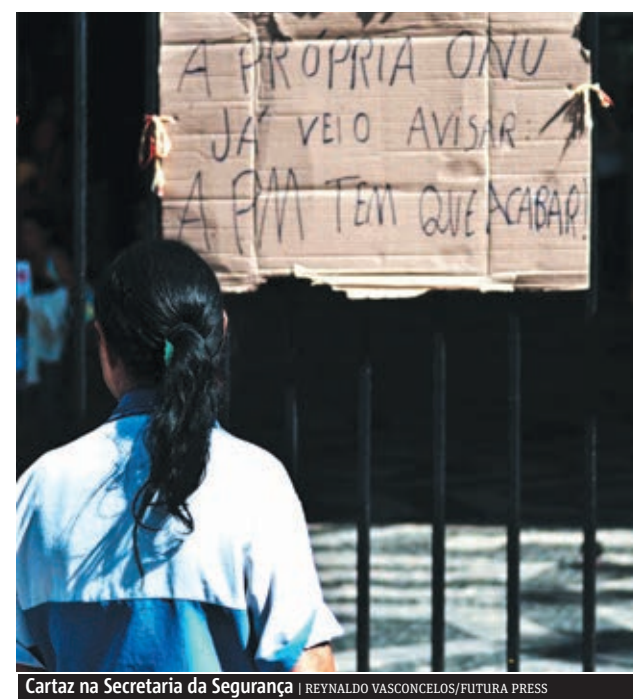 A PRÓPRIA ONU
JÁ VEIO AVISAR:
A PM TEM QUE ACABAR!
Cartaz na Secretaria da Segurança | REYNALDO VASCONCELOS/FUTURA PRESS